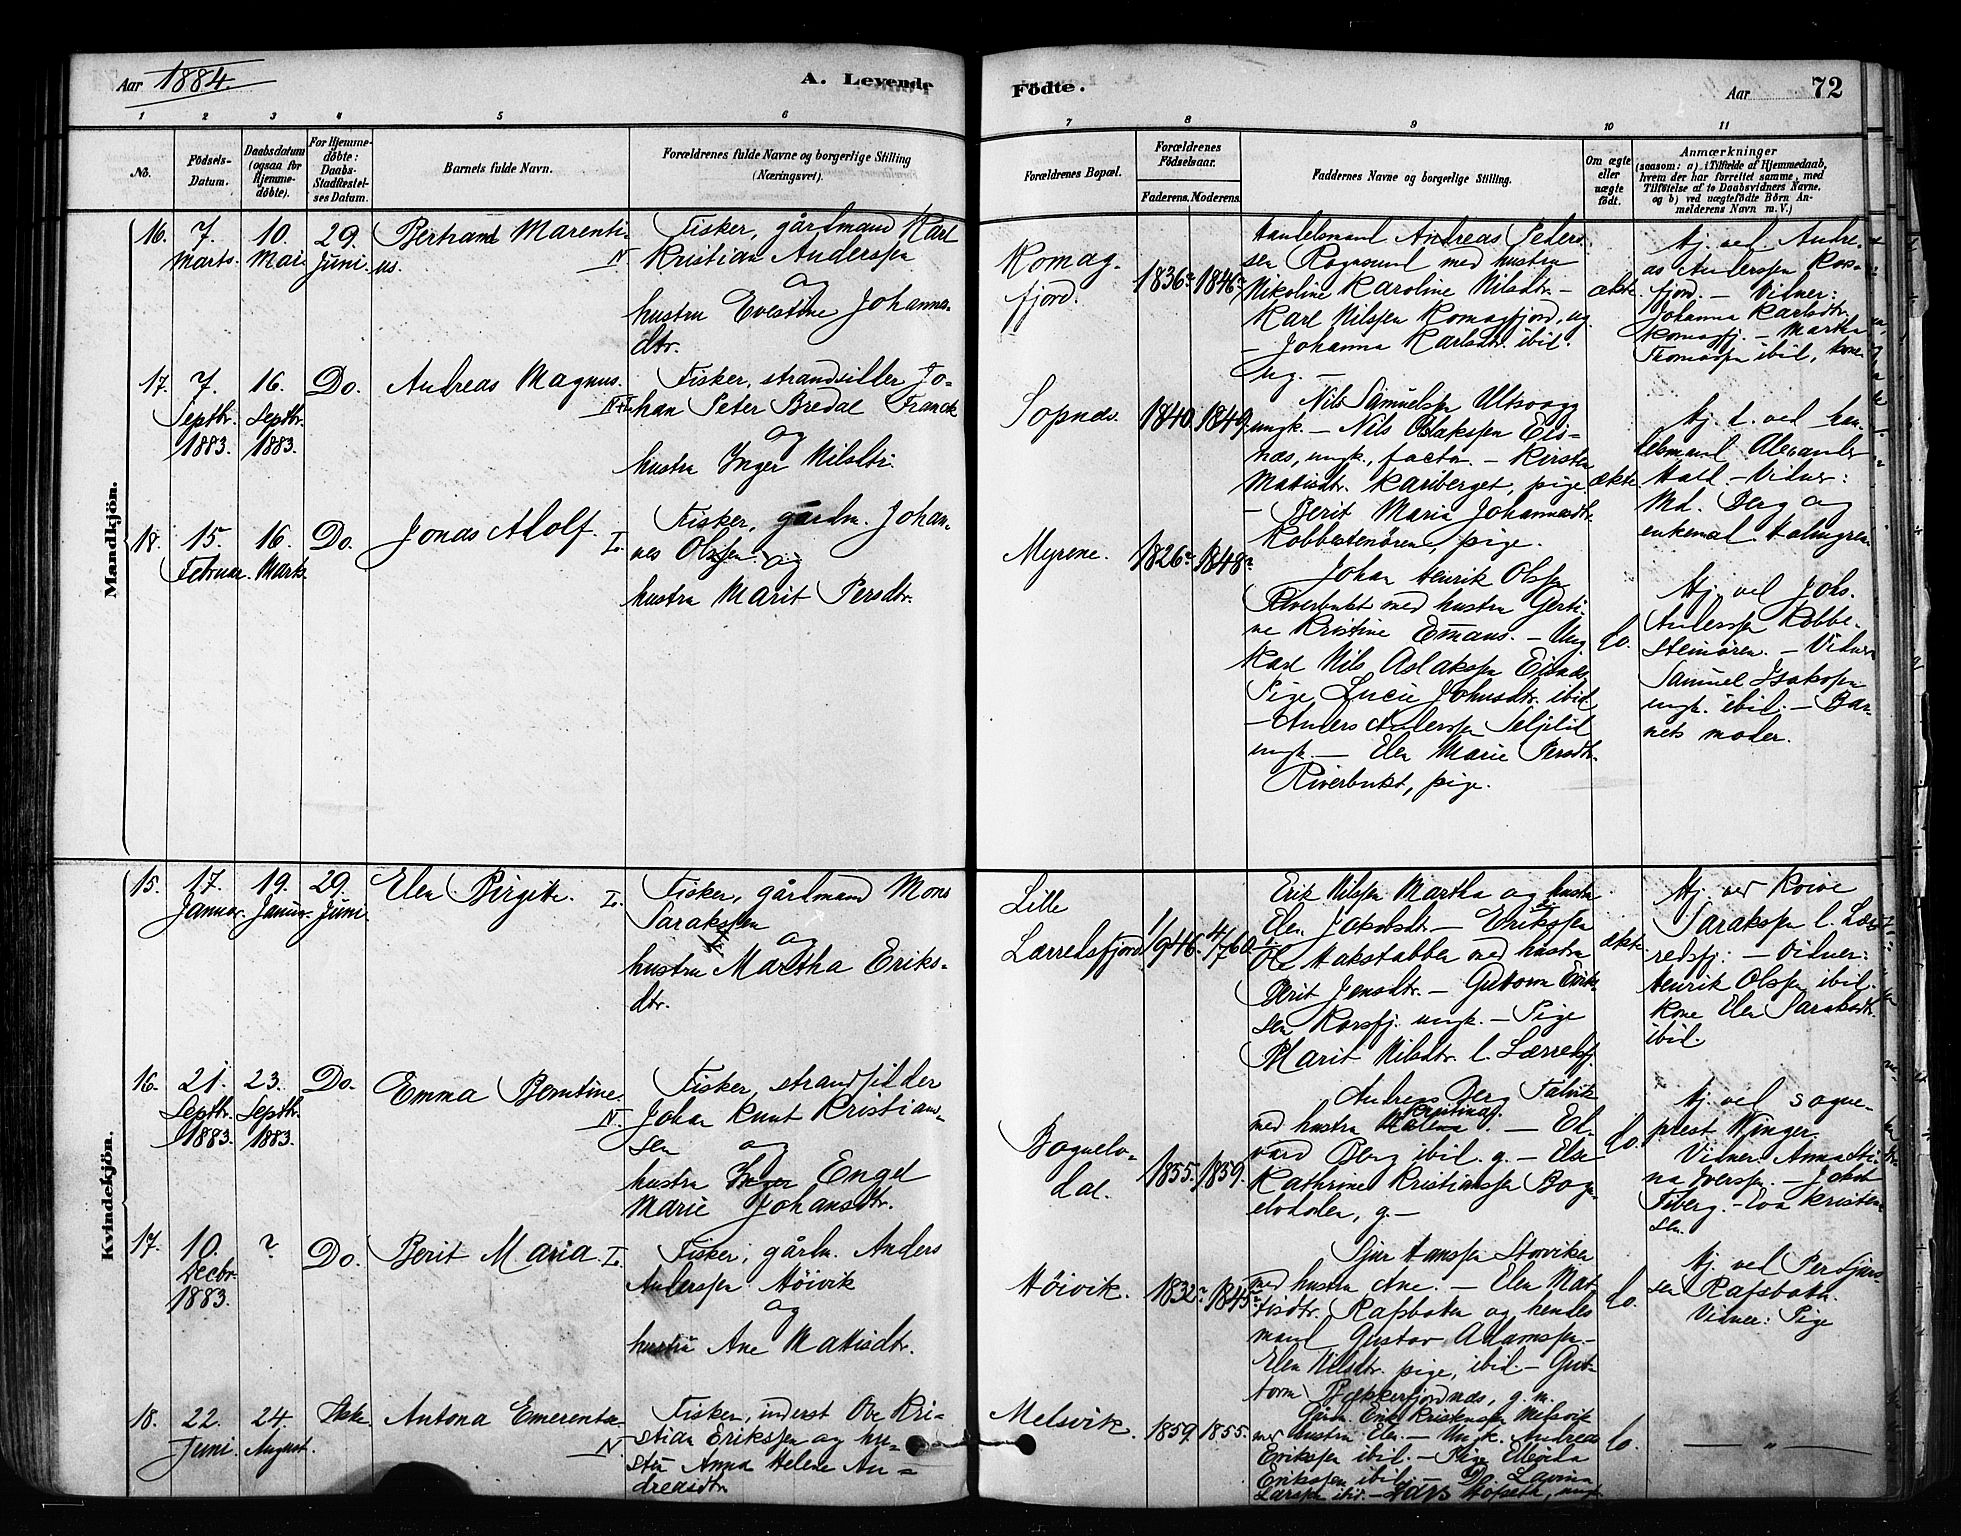 Aar 1884.
A. Levende
Födte.
Aar
72
1 2 3 4 5 6 7 8 9 10 11
No.
Födsels-Datum.
Daabsdatum (ogsaa for Hjemmedöbte).
For Hjemmedöbte: Daabs-Stadfæstelses Datum.
Barnets fulde Navn.
Forældrenes fulde Navne og borgerlige Stilling (Næringsvei).
Forældrenes Bopæl.
Forældrenes Födselsaar.
Faderens. Moderens.
Faddernes Navne og borgerlige Stilling.
Om ægte eller uægte födt.
Anmærkninger
(saasom: a) i Tilfælde af Hjemmedaab, hvem der har forrettet samme, med Tilföielse af to Daabsvidners Navne, og b) ved uægtefödte Börn Anmelderens Navn m. V.)
Mandkjön.
16. 7. Marts. 10. Mai 29. Juni
Bertrand Marentius. N
Fisker, gårdmand Karl
Kristian Anderssen
og
hustru Evertine Johannedtr.
Komagfjord.
1836 1846
Handelsmand Andreas Peders-
sen Rognsund med hustru
Nikoline Karoline Nilsdtr. –
Karl Nilssen Komagfjord, ug.
– Johanna Karlsdtr. ibid.
ug. –
ækte
Hj. ved Andre-
as Anderssen Kos-
fjord. – Vidner:
Johanna Karlsdtr.
Komagfj. – Martha
Tromassen ibid, kone
17. 7. Septbr. 1883. 16. Septbr. 1883. Do.
Andreas Magnus.
Fisker, strandsidder Jo-
han Peter Bredal Franck
og
hustru Inger Nilsdtr.
Sopnes.
1840. 1849.
Nils Samuelssen Ultsvagg
ungk. – Nils Aslakssen Eis-
næs, ungk., factor. – Kirsten
Matisdtr. Kariberget, pige
– Berit Maria Johannesdtr.
Kobbestenören, pige.
ækte
Hj. d. ved han-
delsmand Alexander
Hald – Vidner:
Md. Berg og
enkemd. Halmgren
18. 15. Februar. 16. Marts Do.
Jonas Alolf. L.
Fisker, gårdm. Johan-
nes Olssen og
hustru Marit Persdtr.
Myrene.
1826 1848
Johan Henrik Olssen
Riverbukt med hustru Gerti-
ne Kristine Emans. – Ung
Karl Nils Aslakssen Eisnæs
Pige Lucie Johnsdtr. ibid
– Anders Anderssen Seljelid
ungk – Elen Marie Persdtr.
Riverbukt, pige.
Do.
Hj. ved Johs.
Anderssen Kobbe-
stenören. – Vidner
Samuel Isakssen
ungk. ibid. – Bar-
nets moder.
Kvindekjön.
15. 17. Januar. 19. Januar. 29. Juni
Elen Birgitte. L.
Fisker, gårdmand Mons
Sarakssen
og
hustru Martha Eriks-
dtr.
Lille
Lærredsfjord
1/9 46. 4/7 60.
Erik Nilssen Martha og hustru
Elen Jakobsdtr. – Erikssen
Ole Hakstabben med hustru
Berit Jensdtr. – Guttorm Erik-
sen Korsfj. ungk. – Pige
Marit Nilsdtr. l. Lærredsfj.
ækte.
Hj. ved Kvive
Sarakssen l. Lær-
redsfj: – Vidner:
Henrik Olssen ibid.
Kone Elen Saraksdtr.
ibid.
16. 21. Septbr. 1883. 23. Septbr. 1883. Do.
Emma Berntine. N.
Fisker, strandsidder
Johan Knut Kristian-
sen og
hustru Inger Engel
Marie Johansdtr.
Bognelv-
dal.
1855. 1859.
Andreas Berg Talvik
med hustru Kristina. – Ed-
vard Berg ibid. g. – Else
Kathrine Kristianssen Bogn-
elvdalen, g. –
Do.
Hj. ved sogne-
prest Winger.
Vidner. Anna Sti-
na Iverssen. – Johan
Fiberg. – Eva Kristen-
sen.
17. 10. Decbr. 1883. ? Do.
Berit Maria. L.
Fisker, gårdm. Anders
Anderssen Höivik
og
hustru Ane Mattisdtr.
Höivik.
1832 1845
Sjur Hanssen Storviken
med hustru Ane. – Elen Mat-
tisdtr. Rafsbotn og hendes
mand Gustav Adamssen –
Elen Nilsdtr. pige, ibid. – Gut-
torm Bekkerfjordnæs, g. m.
Do.
Hj. ved Per Sjurs-
sen Rafsbotn.
Vidner: Pige
18. 22. Juni. 24. August.
Antona Emerentse N.
Fisker, inderst Ove Kri-
stian Erikssen og hu-
stru Anna Helene An-
dreasdtr.
Melsvik.
1859. 1855.
Gårdm. Erik Kristenssen Melsvik
med hustru Elen – Ungk. Andreas
Erikssen ibid. – Pige Ellevida
Erikssen ibid – Do Lavina
Larssen ibid. – Lars Hofseth, ungk.
Do.
— „ —